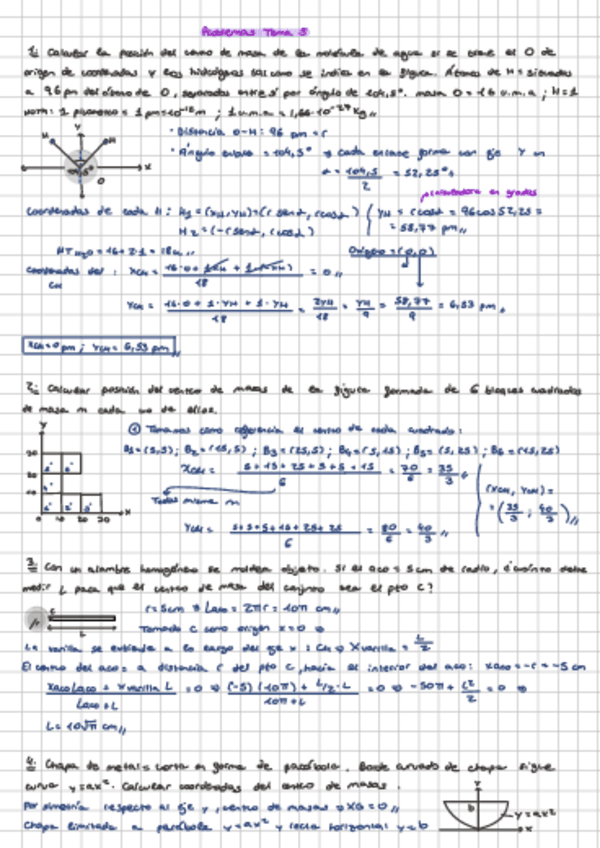 Problemas Tema 5
1. Calcular la posición del centro de masa de la molécula de agua si se tiene el O de
origen de coordenadas y los hidrógenos tal como se indica en la figura. Átomos de H = situados
a 96 pm del átomo de O, separados entre sí por ángulo de 104,5°. masa O = 16 u.m.a ; H = 1
nota: 1 picómetro = 1 pm = 10⁻¹² m ; 1 u.m.a = 1,66·10⁻²⁷ Kg
y
H
H
x
104,5°
O
· Distancia O-H: 96 pm = r
· Ángulo enlace = 104,5° → cada enlace forma con eje Y un
α = 104,5 / 2 = 52,25°
calculadora en grados
Coordenadas de cada H: H₁ = (xH, yH) = (r senα, r cosα)
H₂ = (-r senα, r cosα)
yH = r cosα = 96 cos 52,25 =
= 58,77 pm
MT H₂O = 16 + 2·1 = 18u
Origen = (0,0)
Coordenadas del CM : XCM = 16·0 + 1·xH + 1·(-xH) / 18 = 0
YCM = 16·0 + 1·yH + 1·yH / 18 = 2yH / 18 = yH / 9 = 58,77 / 9 = 6,53 pm
XCM = 0 pm ; YCM = 6,53 pm
2. Calcular posición del centro de masas de la figura formada de 6 bloques cuadrados
de masa m cada uno de ellos.
y
30
20
10
0 10 20 30
x
① Tomamos como referencia el centro de cada cuadrado:
B₁ = (5,5) ; B₂ = (15,5) ; B₃ = (25,5) ; B₄ = (5,15) ; B₅ = (5,25) ; B₆ = (15,25)
XCM = 5 + 15 + 25 + 5 + 5 + 15 / 6 = 70 / 6 = 35 / 3
Todas misma m
(XCM, YCM) =
= (35/3 , 40/3)
YCM = 5+5+5+15+25+25 / 6 = 80 / 6 = 40 / 3
3. Con un alambre homogéneo se moldea objeto. Si el aco = 5 cm de radio, ¿cuánto debe
medir L para que el centro de masa del conjunto sea el pto C?
C
L
r = 5cm → Laco = 2πr = 10π cm
Tomando C como origen x = 0 →
La varilla se extiende a lo largo del eje x : CM → Xvarilla = L / 2
El centro del aco = a distancia r del pto C, hacia el interior del aco: xaco = -r = -5 cm
xaco Laco + xvarilla L / Laco + L = 0 → (-5)(10π) + L/2 · L / 10π + L = 0 → -50π + L² / 2 = 0 →
L = 10√π cm
4. Chapa de metal = corta en forma de parábola. Borde curvado de chapa sigue
curva y = ax². Calcular coordenadas del centro de masas.
Por simetría respecto al eje y, centro de masas → XG = 0
Chapa limitada a parábola y = ax² y recta horizontal y = b
y
b
y = ax²
x